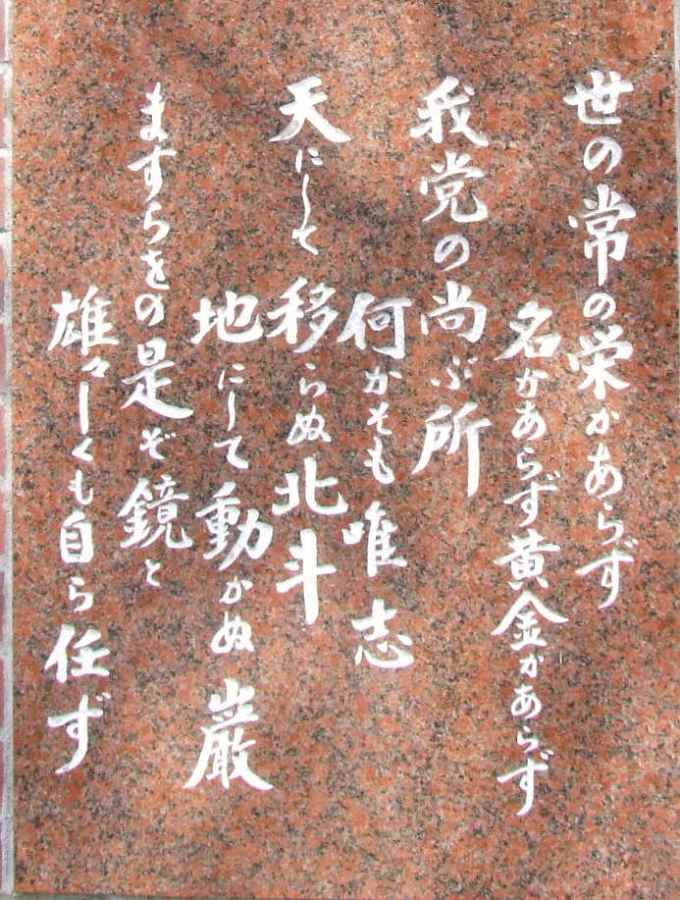 世の常の栄かあらず
名かあらず黄金かあらず
我党の尚ぶ所
何かそも唯志
天にして移らぬ北斗
地にして動かぬ巌
ますらをの是ぞ鏡と
雄々しくも自ら任ず